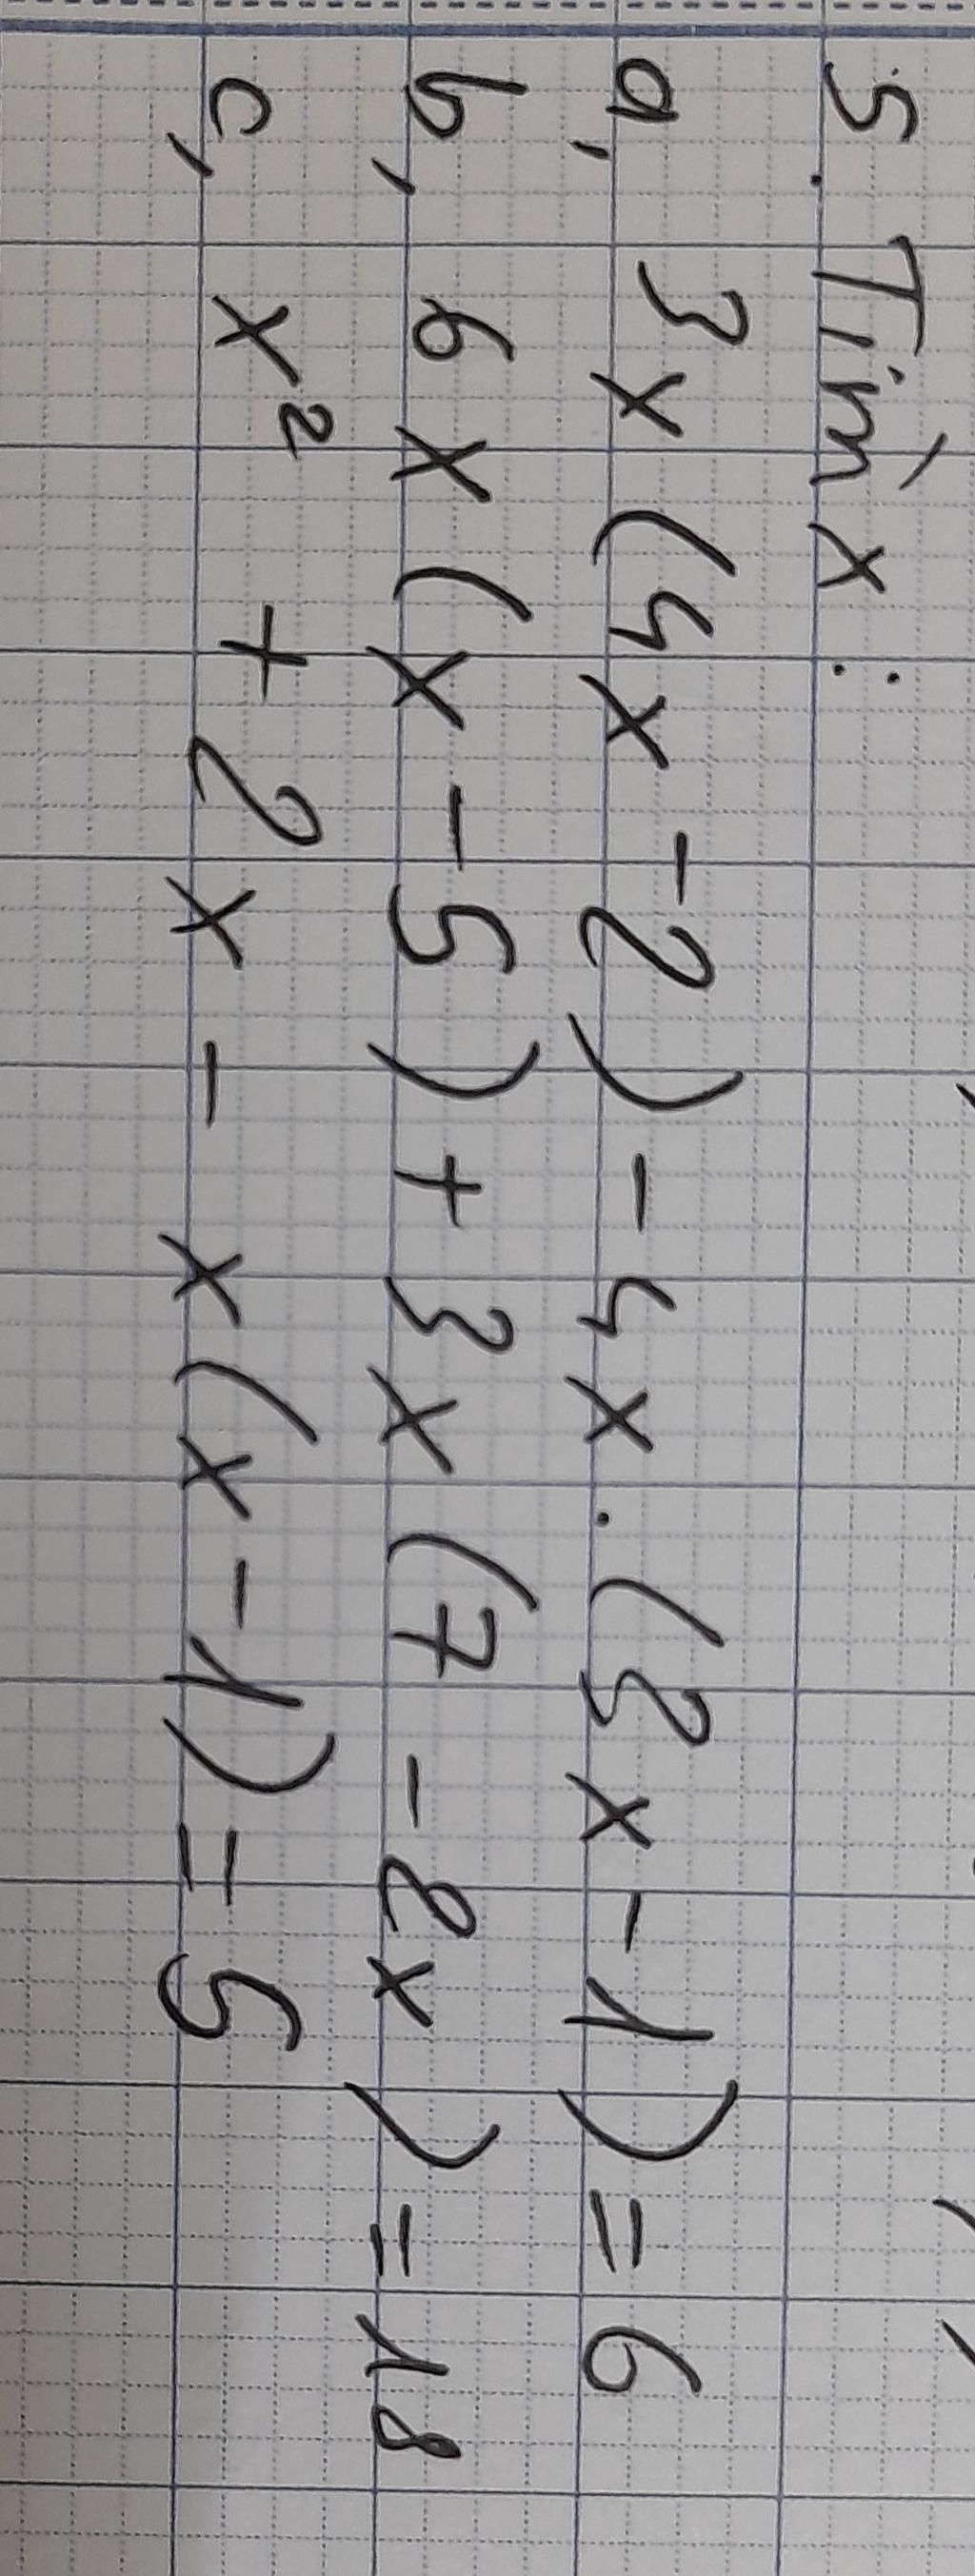 5. Tìm x :
a, 3x(4x - 2) - 4x.(3x - 1) = 6
b, 6x(x - 5) + 3x(7 - 2x) = 18
c, x² + 2x - x(x - 1) = 5